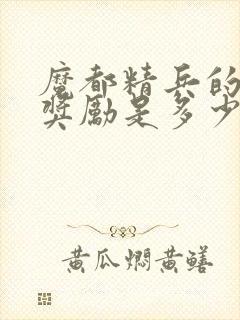 魔都精兵的
奖励是多少
黄瓜焖黄鳝